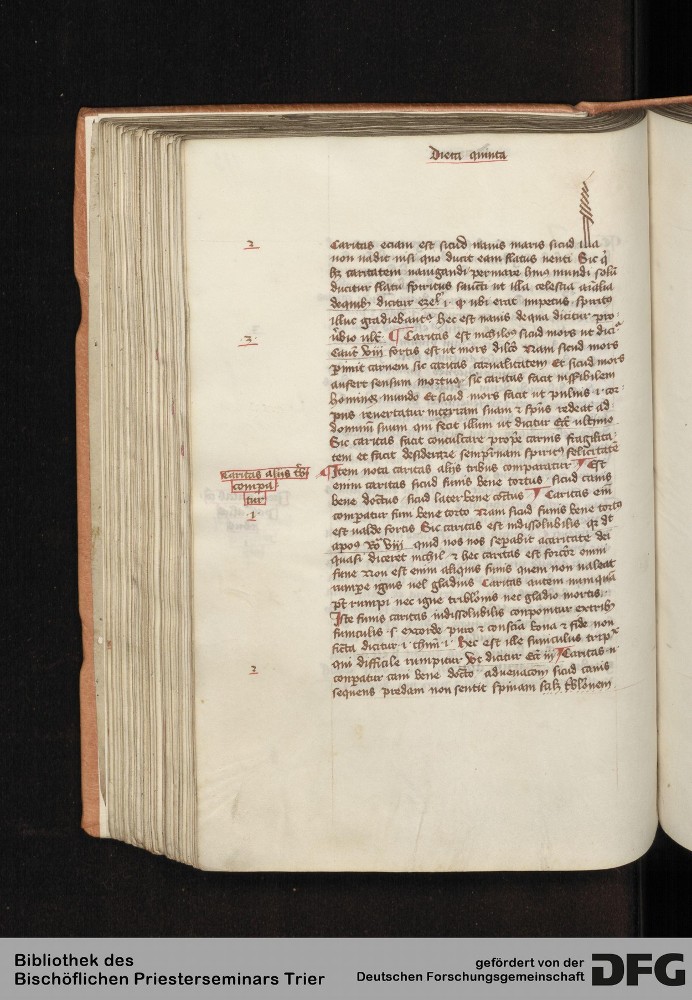 Dieta quinta
2
Caritas eciam est sicud nauis maris sicud illa
non vadit nisi quo ducit eam flatus venti Sic q
hz caritatem nauigandi per mare huius mundi solū
ducitur flatu spiritus sancti ut illa celestia aīalia
de quibz dicitur eze i q ubi erat impetus spirito
illuc gradiebantr hec est nauis de qua dicitur pro
3
ūbio ult Caritas est michilo sicud mors ut dicir
Cant viii fortis est ut mors dilcō Nam sicud mors
pimit carnem sic caritas carnalitatem Et sicud mors
aufert sensum mortuo sic caritas facit insensibilem
hominem mundo Et sicud mors facit ut puluis i cor
pus reuertatur in terram suam z spūs redeat ad
dominū suum qui fecit illum ut dicitur Ecc ultimo
Sic caritas facit conculcare prope carnis fragilita
tem et facit desiderare sempitnam spiritus felicitatē
Caritas alijs tbz
compa
tur
Item nota caritas alijs tribus comparatur Est
enim caritas sicud funis bene tortus sicud canis
bene doctus sicud later bene coctus Caritas em
1
comparatur funi bene torto Nam sicud funis bene tortus
est valde fortis Sic caritas est indissolubilis q dt
apos Ro viii quid nos nos sepabit a caritate dei
quasi diceret nichil z hec caritas est forcior omni
fune Non est enim aliquis funis quem non valeat
rumpe ignis vel gladius Caritas autem nunquā
pt rumpi nec igne tribulonis nec gladio mortis
Iste funis caritas indissolubilis conponitur ex tribz
funiculis s ex corde puro z consciā bona z fide non
ficta dicitur i thim i hec est ille funiculus trip
qui difficile rumpitur Vt dicitur Ecc iiij Caritas
2
conpatur cani bene docto ad venacōm sicud canis
sequens predam non sentit spinam
Bibliothek des
Bischöflichen Priesterseminars Trier
gefördert von der
Deutschen Forschungsgemeinschaft
DFG